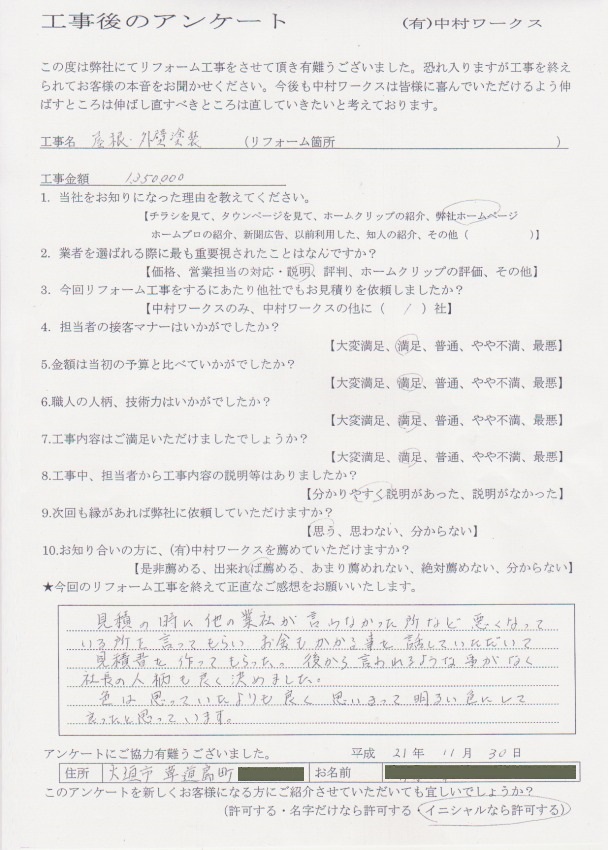 工事後のアンケート (有)中村ワークス
この度は弊社にてリフォーム工事をさせて頂き有難うございました。恐れ入りますが工事を終え
られてお客様の本音をお聞かせください。今後も中村ワークスは皆様に喜んでいただけるよう伸
ばすところは伸ばし直すべきところは直していきたいと考えております。
工事名 屋根・外壁塗装 (リフォーム箇所 )
工事金額 1,350,000
1. 当社をお知りになった理由を教えてください。
【チラシを見て、タウンページを見て、ホームクリップの紹介、弊社ホームページ
ホームプロの紹介、新聞広告、以前利用した、知人の紹介、その他( )】
2. 業者を選ばれる際に最も重要視されたことはなんですか?
【価格、営業担当の対応・説明、評判、ホームクリップの評価、その他】
3. 今回リフォーム工事をするにあたり他社でもお見積りを依頼しましたか?
【中村ワークスのみ、中村ワークスの他に( / )社】
4. 担当者の接客マナーはいかがでしたか?
【大変満足、満足、普通、やや不満、最悪】
5.金額は当初の予算と比べていかがでしたか?
【大変満足、満足、普通、やや不満、最悪】
6.職人の人柄、技術力はいかがでしたか?
【大変満足、満足、普通、やや不満、最悪】
7.工事内容はご満足いただけましたでしょうか?
【大変満足、満足、普通、やや不満、最悪】
8.工事中、担当者から工事内容の説明等はありましたか?
【分かりやすく説明があった、説明がなかった】
9.次回も縁があれば弊社に依頼していただけますか?
【思う、思わない、分からない】
10.お知り合いの方に、(有)中村ワークスを薦めていただけますか?
【是非薦める、出来れば薦める、あまり薦めれない、絶対薦めない、分からない】
★今回のリフォーム工事を終えて正直なご感想をお願いいたします。
見積の時に他の業社が言わなかった所など悪くなって
いる所を言ってもらい お金もかかる事を話していただいて
見積書を作ってもらった。後から言われるような事がなく
社長の人柄も良く決めました。
色は思っていたよりも良く 思いきって明るい色にして
良かったと思っています。
アンケートにご協力有難うございました。 平成 21 年 11 月 30 日
住所 大垣市 草道島町 お名前
このアンケートを新しくお客様になる方にご紹介させていただいても宜しいでしょうか?
(許可する・名字だけなら許可する・イニシャルなら許可する)